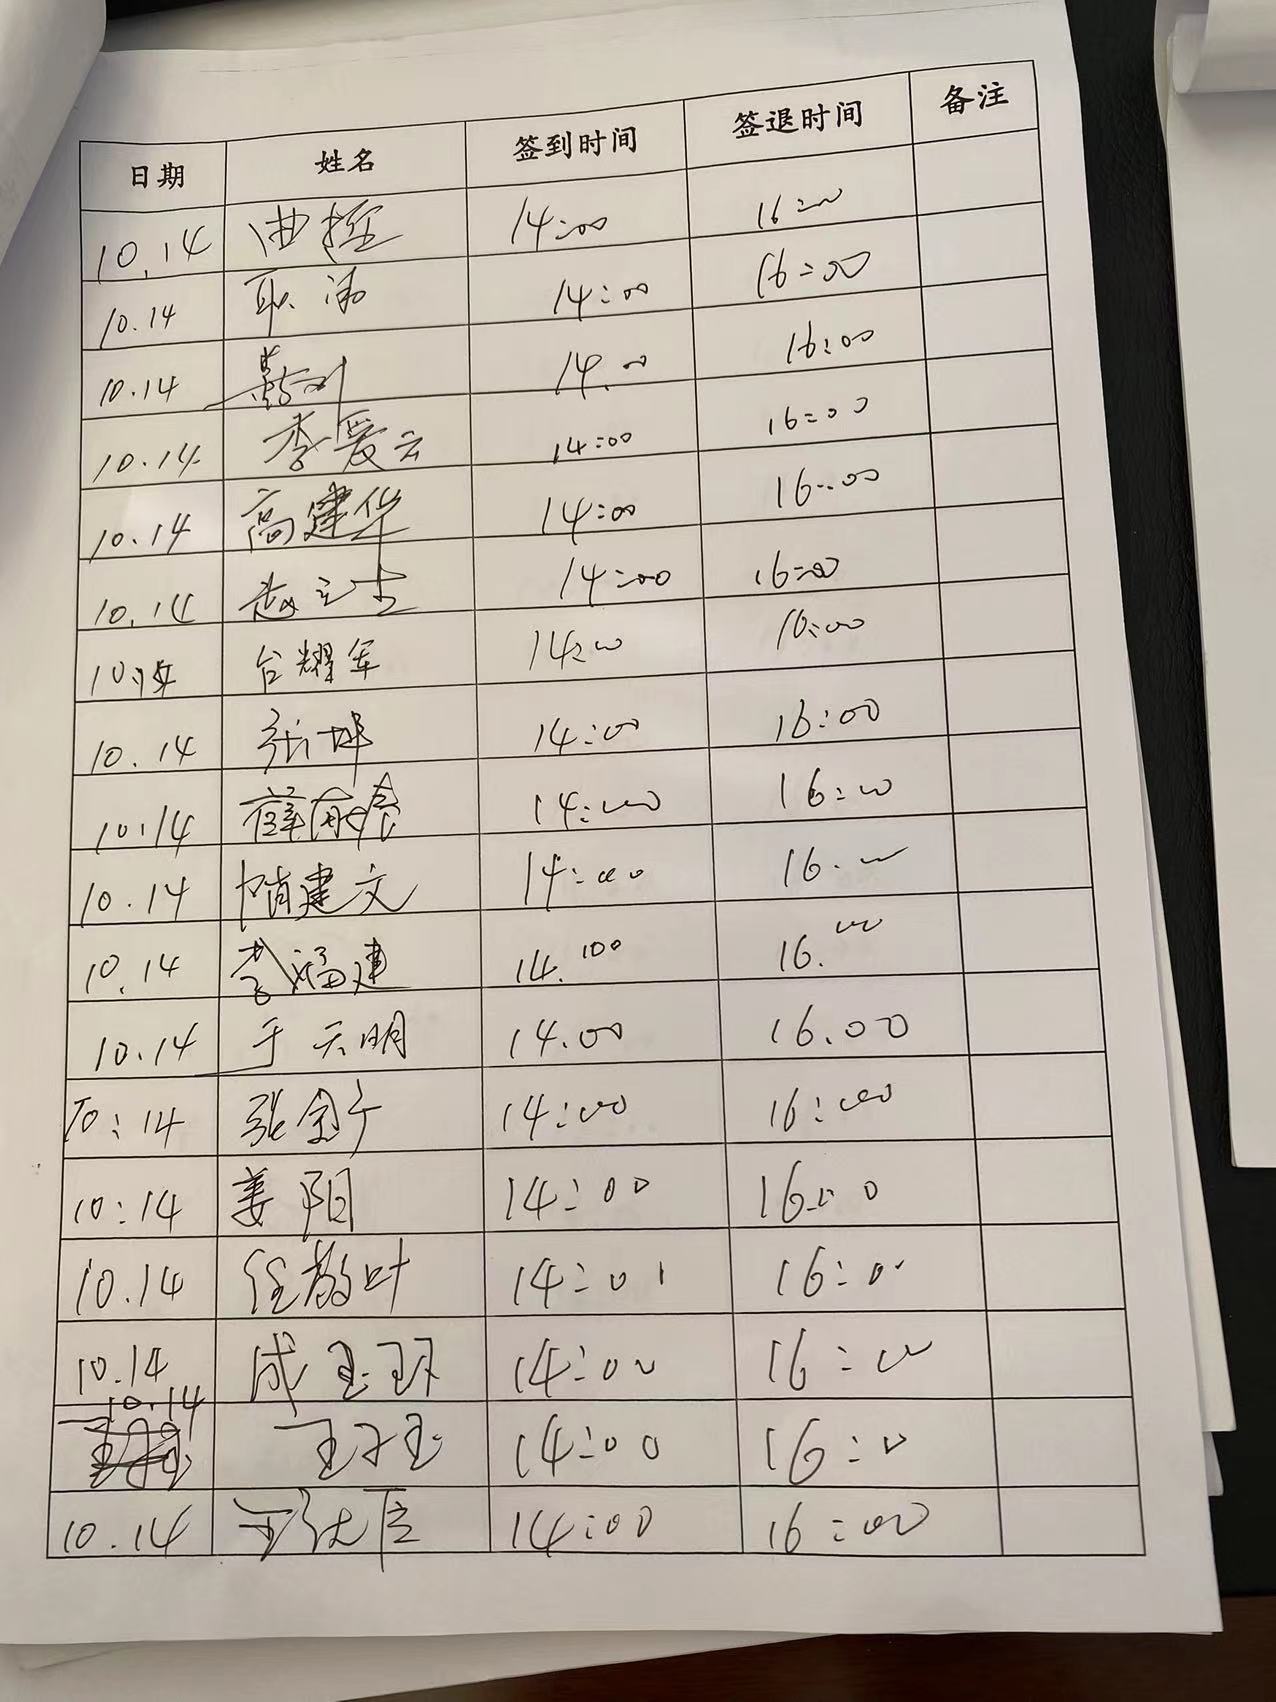 日期 姓名 签到时间 签退时间 备注
10.14 曲 14:00 16:00
10.14 耿涛 14:00 16:00
10.14 14:00 16:00
10.14 李爱云 14:00 16:00
10.14 高建华 14:00 16:00
10.14 赵 14:00 16:00
10.14 台耀军 14:00 16:00
10.14 张坤 14:00 16:00
10.14 薛 14:00 16:00
10.14 隋建文 14:00 16:00
10.14 李福建 14:00 16:00
10.14 于天明 14.00 16.00
10:14 张 14:00 16:00
10:14 姜阳 14:00 16:00
10.14 任 叶 14:01 16:00
10.14 成玉环 14:00 16:00
10.14 王子玉 14:00 16:00
10.14 14:00 16:00